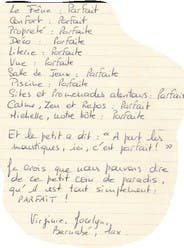 Le Frêne : Parfait
Confort : Parfait
Propreté : Parfaite
Déco : Parfaite
Literie : Parfaite
Vue : Parfaite
Salle de Jeux : Parfaite
Piscine : Parfaite
Sites et Promenades alentours : Parfaits
Calme, Zen et Repos : Parfait
Michelle, notre hôte : Parfaite
Et le petit a dit : " A part les
moustiques, ici, c'est parfait ! "
Je crois que nous pouvons dire
de ce petit coin de paradis,
qu'il est tout simplement :
PARFAIT !
Virginie, Jocelyn,
Barnabé, Max